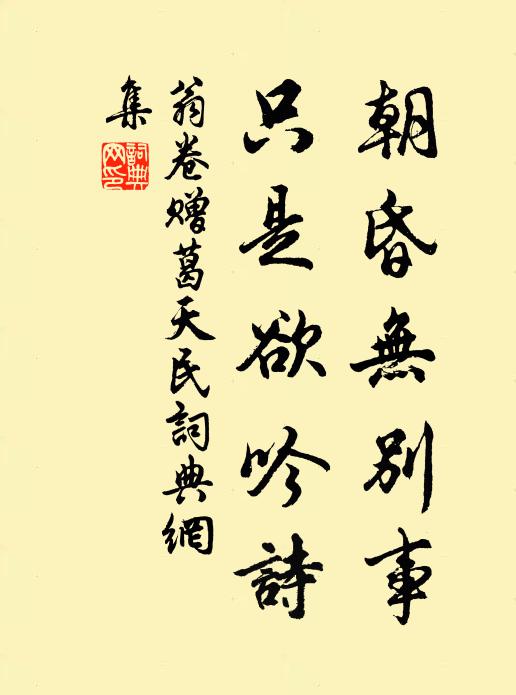 朝昏無別事
只是欲吟詩
翁卷贈葛天民詞典網
集
詞典
网印